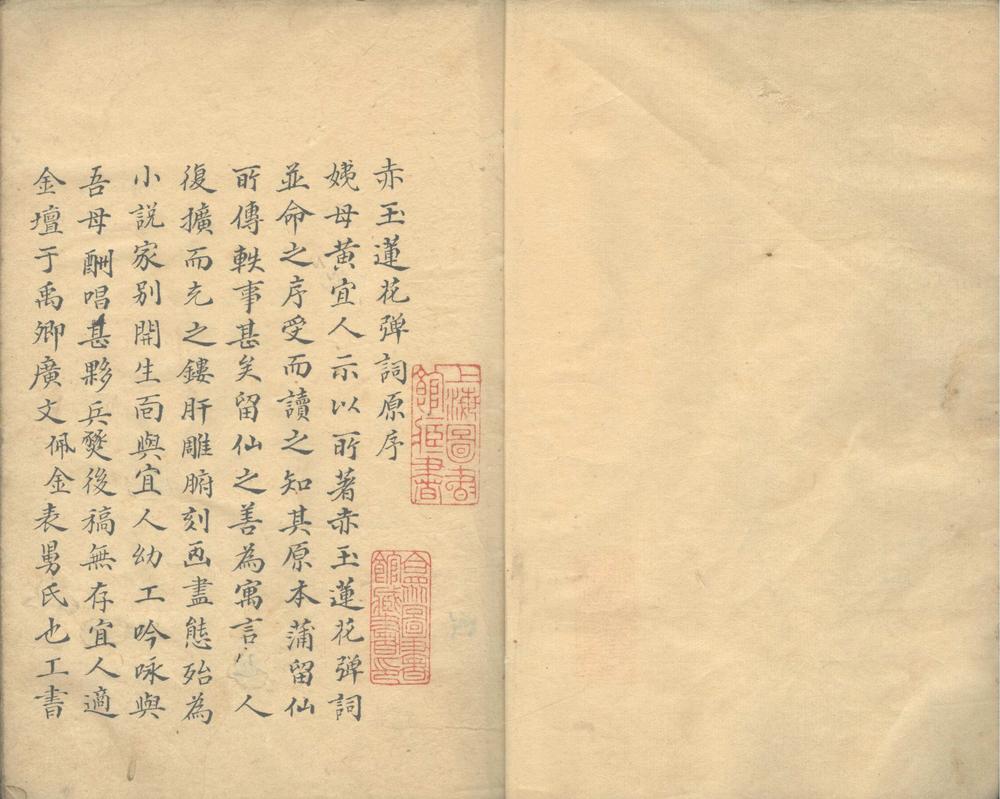 赤玉蓮花彈詞原序
姨母黄宜人示以所著赤玉蓮花彈詞
並命之序受而讀之知其原本蒲留仙
所傳軼事甚矣留仙之善為寓言人
復擴而充之鏤肝雕腑刻画盡態殆為
小説家别開生面與宜人幼工吟咏與
吾母酬唱甚夥兵燹後稿無存宜人適
金壇于禹卿廣文佩金表舅氏也工書
上海圖書館藏書